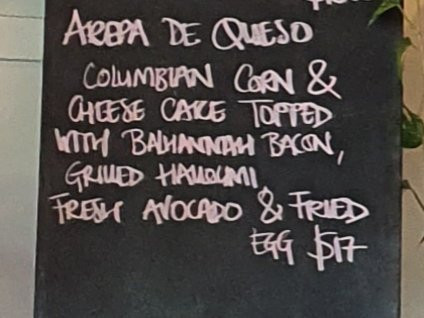 AREPA DE QUESO
COLUMBIAN CORN &
CHEESE CAKE TOPPED
WITH BALHANNAH BACON,
GRILLED HALLOUMI
FRESH AVOCADO & FRIED
EGG $17